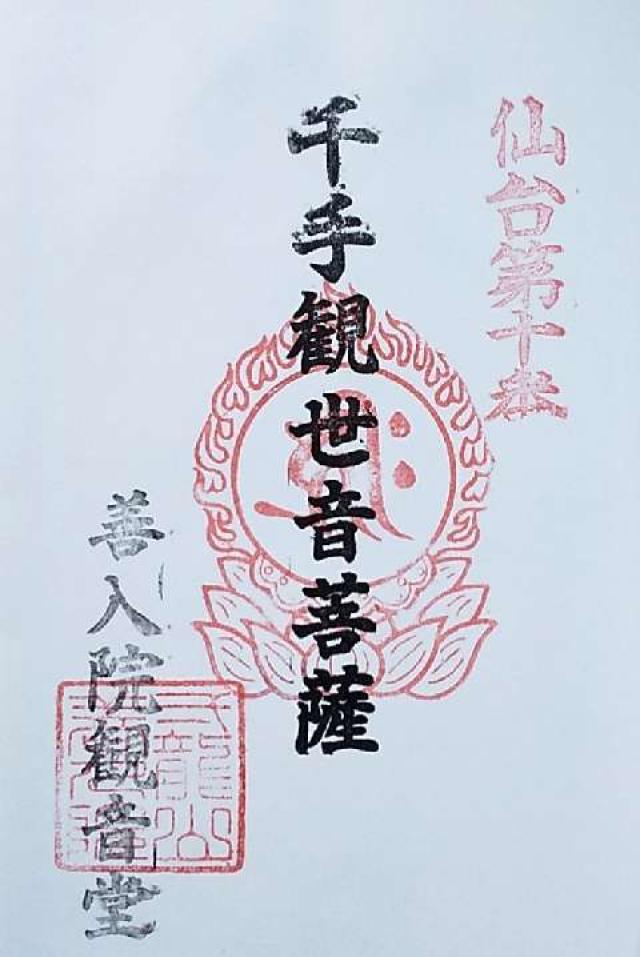 仙台第十
千手観世音菩薩
善入院観音堂